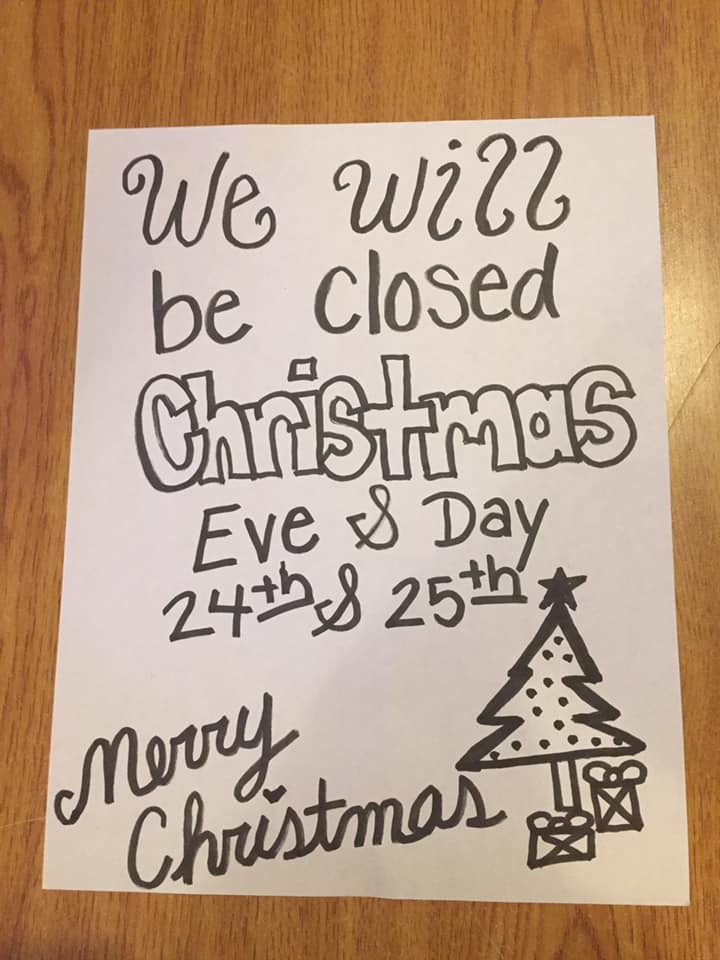 We will
be closed
Christmas
Eve & Day
24th & 25th
Merry
Christmas